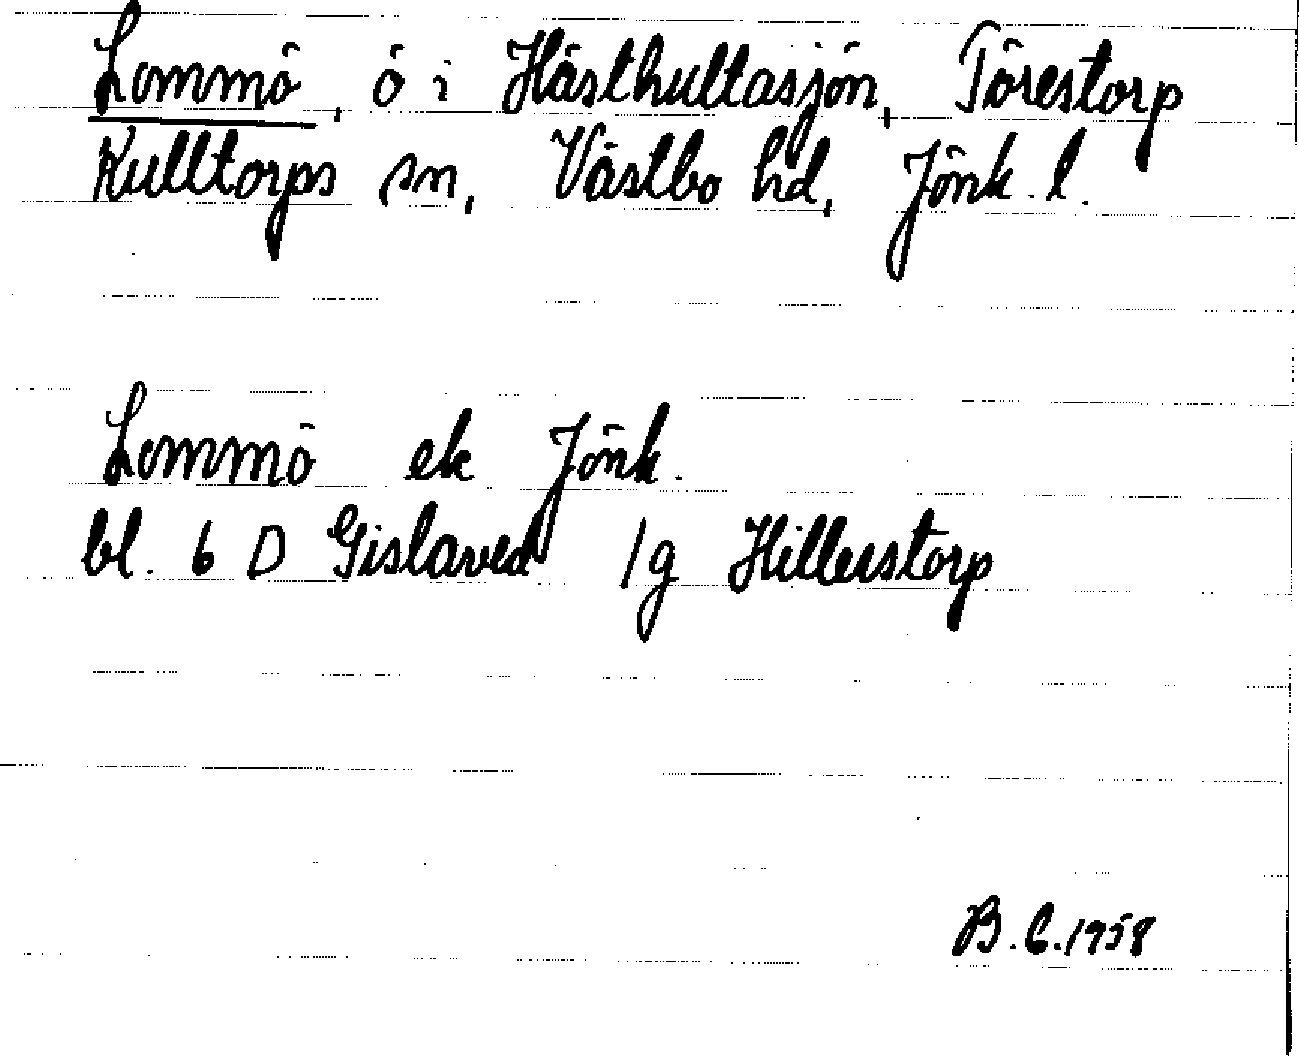 Lommö, ö i Hästhultasjön, Törestorp
Kulltorps sn, Västbo hd, Jönk. l.
Lommö ek Jönk.
bl. 6 D Gislaved 1g Hillerstorp
B. C. 1958